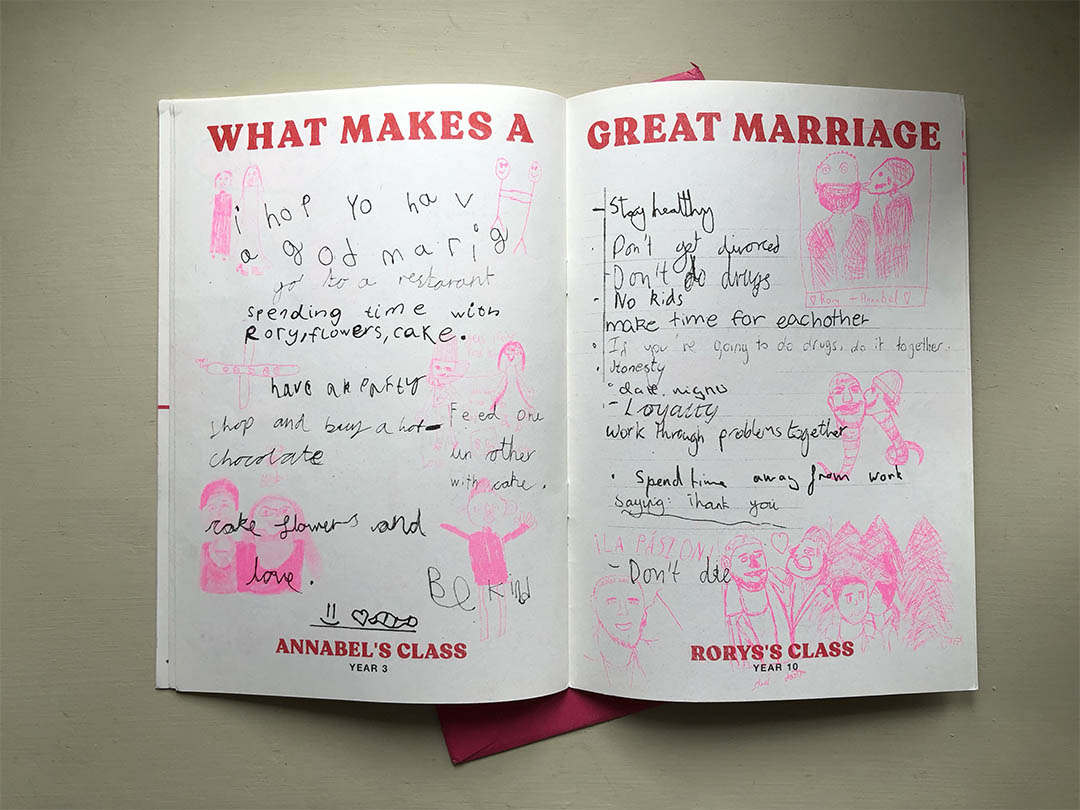 WHAT MAKES A
i hop yo hav
a god marig
go to a restarant
spending time with
Rory, flowers, cake.
have a party
hop and buy a hot
chocolate
Feed one
un other
with cake.
cake flowers and
love.
Be kind
ANNABEL'S CLASS
YEAR 3
GREAT MARRIAGE
♡ Rory + Annabel ♡
- Stay healthy
· Don't get divorced
- Don't do drugs
- No kids
make time for eachother
· If you're going to do drugs, do it together.
· Honesty
· date nights
- Loyalty
work through problems together
· Spend time away from work
saying: Thank you
¡LA PASION!
- Don't die
RORYS'S CLASS
YEAR 10